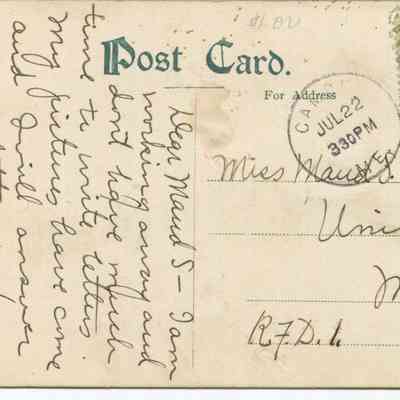 $1.00
Post Card.
For Address
CAM
JUL 22
330PM
NEB
Miss Maud S
Uni
M
R.F.D. 1.
Dear Maud S - I am
working away and
don't have much
time to write letters.
My pictures have come
and I will answer